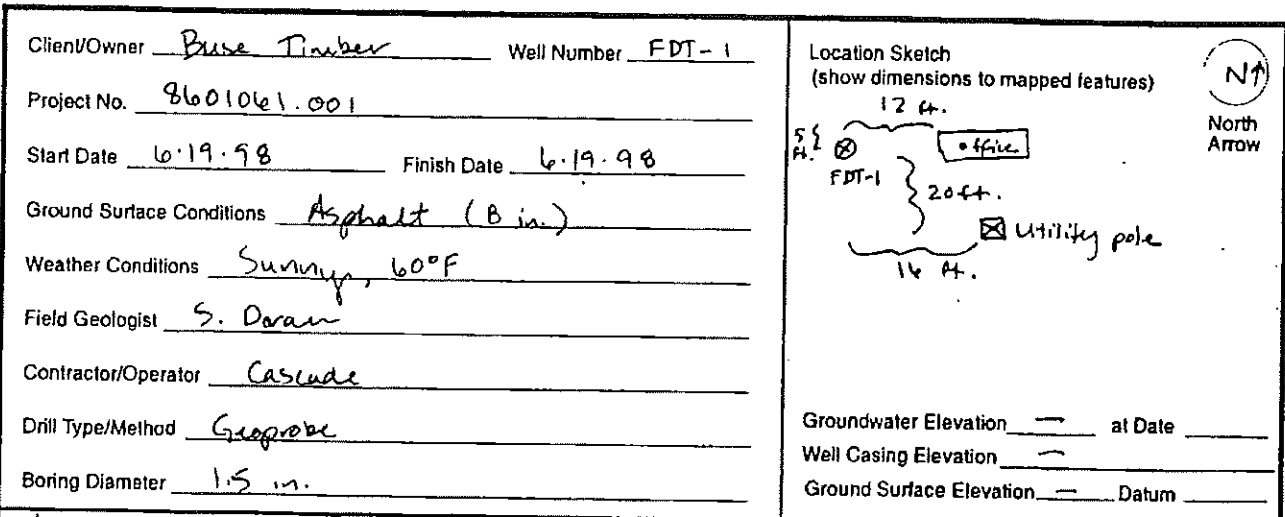 Client/Owner Buse Timber Well Number FDT-1
Project No. 8601061.001
Start Date 6.19.98 Finish Date 6.19.98
Ground Surface Conditions Asphalt (8 in.)
Weather Conditions Sunny, 60°F
Field Geologist S. Doran
Contractor/Operator Cascade
Drill Type/Method Geoprobe
Boring Diameter 1.5 in.
Location Sketch
(show dimensions to mapped features)
N
North
Arrow
12 ft.
5 ft.
office
FDT-1
20 ft.
Utility pole
16 ft.
Groundwater Elevation — at Date
Well Casing Elevation —
Ground Surface Elevation — Datum